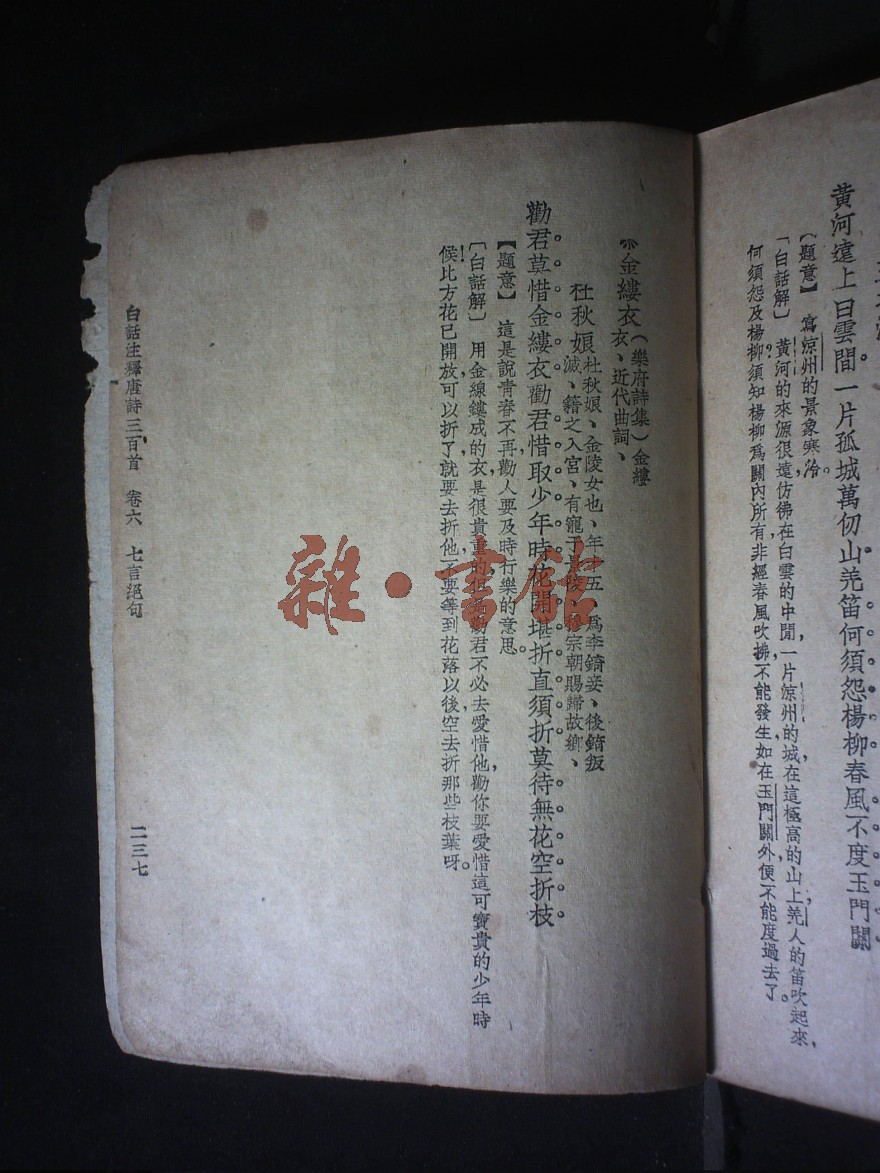 黃河遠上白雲間一片孤城萬仞山羌笛何須怨楊柳春風不度玉門關
【題意】 寫涼州的景象寒冷。
【白話解】 黃河的來源很遠，仿佛在白雲的中間，一片涼州的城，在這極高的山上，羌人的笛吹起來，
何須怨及楊柳？須知楊柳爲關內所有，非經春風吹拂，不能發生，如在玉門關外，便不能度過去了。
金縷衣（樂府詩集）金縷
衣、近代曲詞、
杜秋娘 杜秋娘、金陵女也、年十五、爲李錡妾、後錡叛
滅、籍之入宮、有寵于景陵、穆宗朝賜歸故鄉、
勸君莫惜金縷衣勸君惜取少年時花開堪折直須折莫待無花空折枝
【題意】 這是說青春不再，勸人要及時行樂的意思。
【白話解】 用金線鏤成的衣，是很貴重的，但是勸君不必去愛惜他，勸你要愛惜這可寶貴的少年時
候！比方花已開放可以折了，就要去折他，不要等到花落以後，空去折那些枝葉呀。
白話注釋唐詩三百首 卷六 七言絕句
二三七
雜·書館